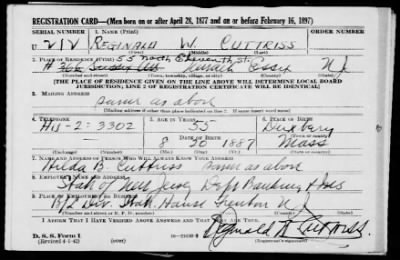 REGISTRATION CARD—(Men born on or after April 28, 1877 and on or before February 16, 1897)
SERIAL NUMBER 1. NAME (Print) ORDER NUMBER
U 212 REGINALD W. CUTTRISS
(First) (Middle) (Last)
2. PLACE OF RESIDENCE (Print) 55 North Eleventh St.
Newark Essex N J
(Number and street) (Town, township, village, or city) (County) (State)
[THE PLACE OF RESIDENCE GIVEN ON THE LINE ABOVE WILL DETERMINE LOCAL BOARD
JURISDICTION; LINE 2 OF REGISTRATION CERTIFICATE WILL BE IDENTICAL]
3. MAILING ADDRESS
same as above
[Mailing address if other than place indicated on line 2. If same insert word same]
4. TELEPHONE 5. AGE IN YEARS 6. PLACE OF BIRTH
55 Duxbery
2-3302 DATE OF BIRTH
8 30 1887 Mass
(Exchange) (Number) (Mo.) (Day) (Yr.) (State or country)
7. NAME AND ADDRESS OF PERSON WHO WILL ALWAYS KNOW YOUR ADDRESS
Hilda B. Cuttriss same as above
8. EMPLOYER'S NAME AND ADDRESS
State of New Jersey Dept Banking & Ins
9. PLACE OF EMPLOYMENT OR BUSINESS
State House Trenton N J
(Number and street or R. F. D. number) (Town) (County) (State)
I AFFIRM THAT I HAVE VERIFIED ABOVE ANSWERS AND THAT THEY ARE TRUE.
D. S. S. Form 1
(Revised 4-1-42) Reginald W Cuttriss
(Registrant's signature)